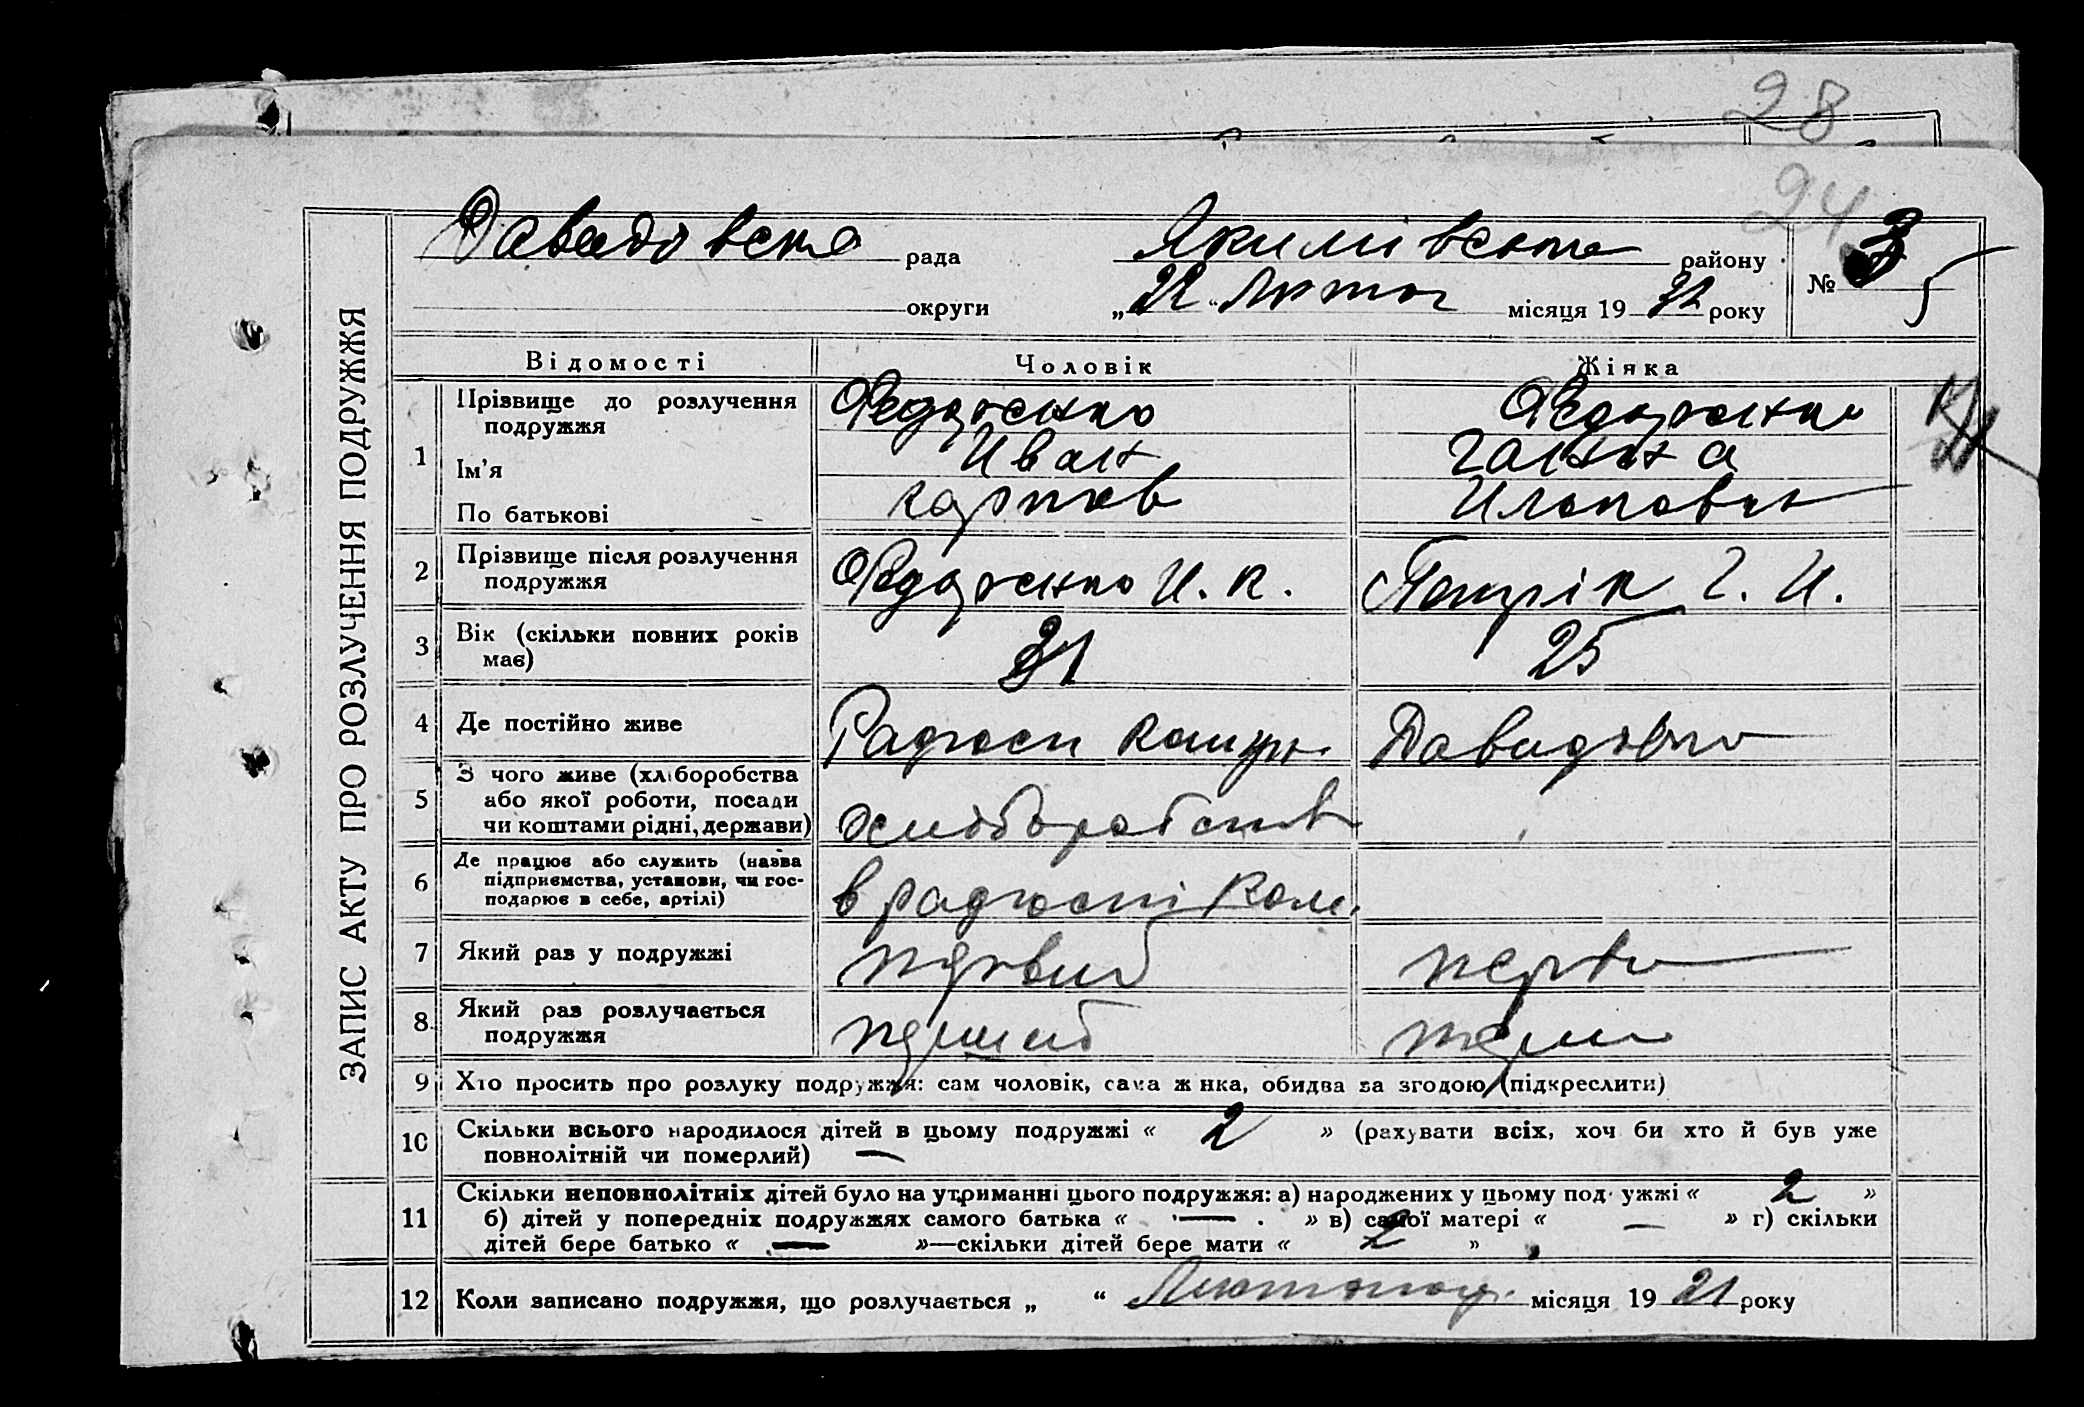 28
24
Давадовска рада Якимівська району № 3 5
округи „22" Лютог місяця 19 32 року
ЗАПИС АКТУ ПРО РОЗЛУЧЕННЯ ПОДРУЖЖЯ
Відомості Чоловік Жінка
1 Прізвище до розлучення подружжя Федоренко Федоренко
Ім'я Иван Ганна
По батькові Карпов
2 Прізвище після розлучення подружжя Федоренко И. К. Г. И.
3 Вік (скільки повних років має) 31 25
4 Де постійно живе Радгосп Давидовка
5 З чого живе (хліборобства або якої роботи, посади чи коштами рідні, держави) хліборобств
6 Де працює або служить (назва підприємства, установи, чи господарює в себе, артілі) в радгоспі Ком.
7 Який раз у подружжі первий перва
8 Який раз розлучається подружжя
9 Хто просить про розлуку подружжя: сам чоловік, сама жінка, обидва за згодою (підкреслити)
10 Скільки всього народилося дітей в цьому подружжі « 2 » (рахувати всіх, хоч би хто й був уже
повнолітній чи померлий) —
11 Скільки неповнолітніх дітей було на утриманні цього подружжя: а) народжених у цьому подружжі « 2 »
б) дітей у попередніх подружжях самого батька « — » в) самої матері « — » г) скільки
дітей бере батько « — »—скільки дітей бере мати « 2 »
12 Коли записано подружжя, що розлучається „ " місяця 19 21 року